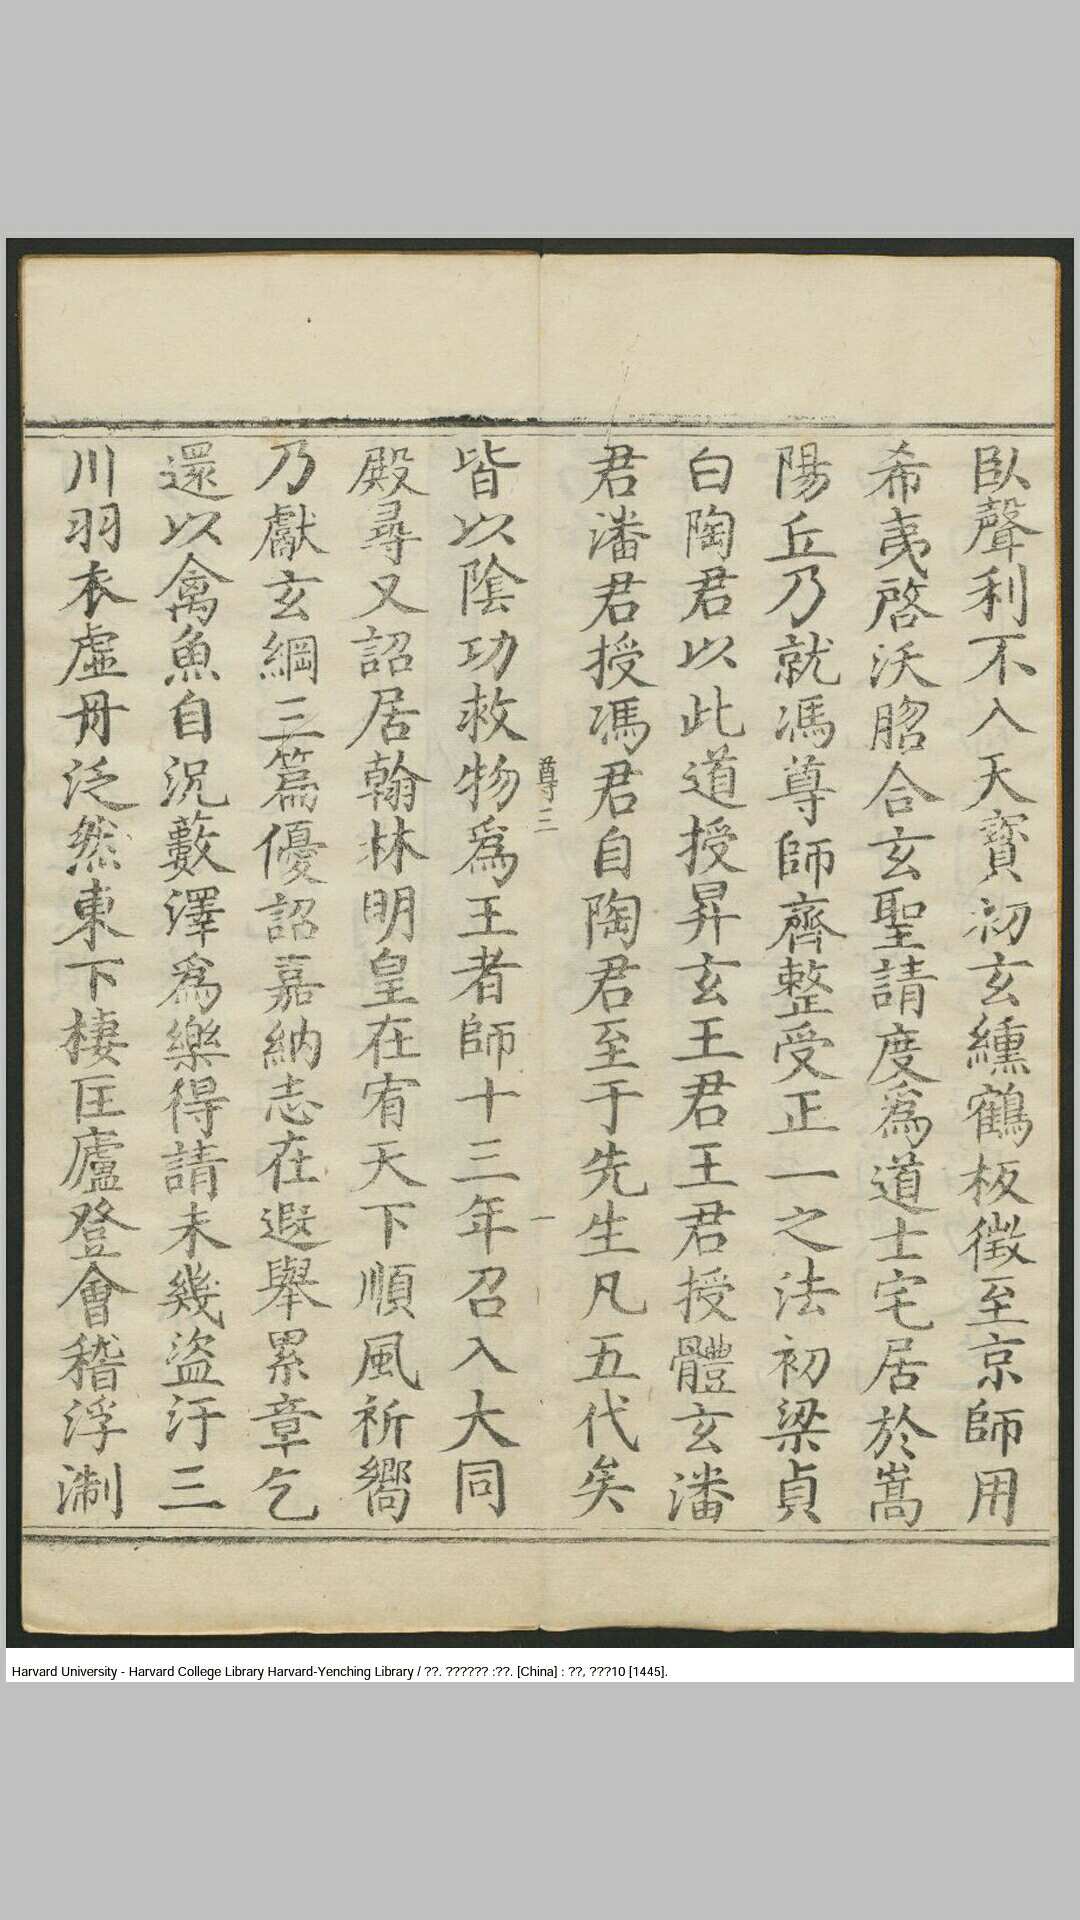 臥聲利不入天寳初玄纁鶴板徵至京師用
希夷啓沃䏚合玄聖請度爲道士宅居於嵩
陽丘乃就馮尊師齊整受正一之法初梁貞
白陶君以此道授昇玄王君王君授體玄潘
君潘君授馮君自陶君至于先生凡五代矣
尊三
一
皆以陰功救物爲王者師十三年召入大同
殿尋又詔居翰林明皇在宥天下順風祈嚮
乃獻玄綱三篇優詔嘉納志在遐舉累章乞
還以禽魚自況藪澤爲樂得請未幾盜汙三
川羽衣虛舟泛然東下棲匡廬登會稽浮淛
Harvard University - Harvard College Library Harvard-Yenching Library / ??. ?????? :??. [China] : ??, ???10 [1445].